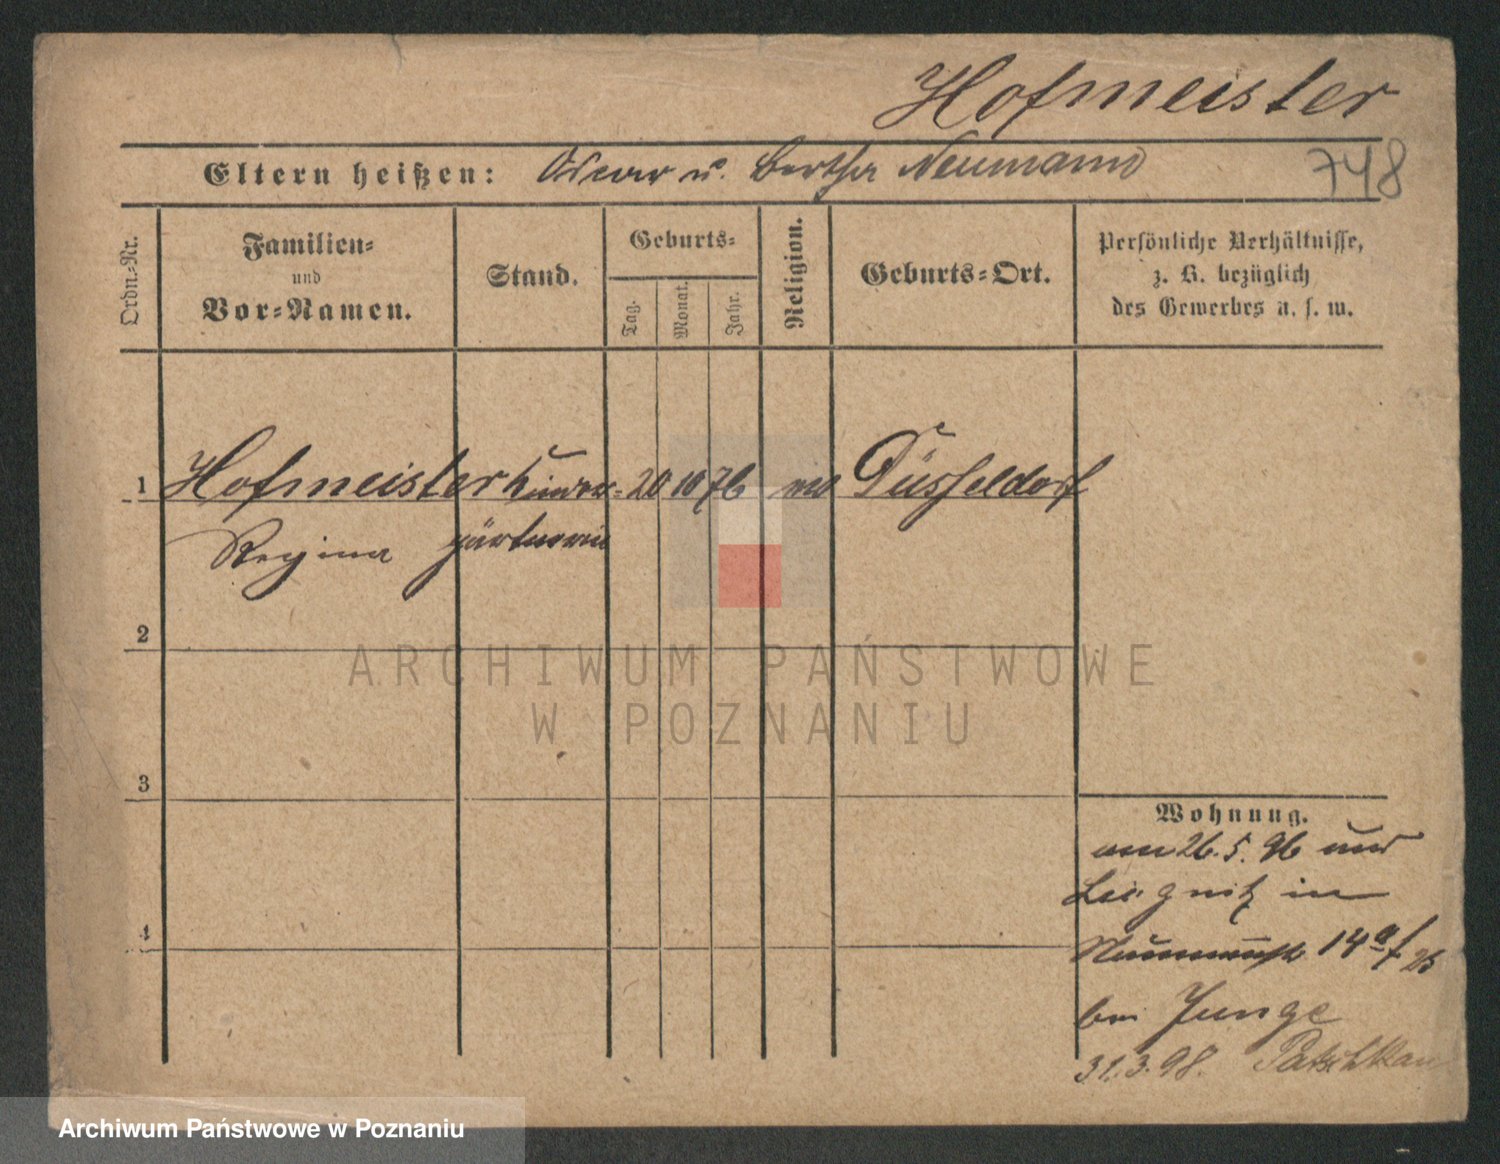 Hofmeister
Eltern heißen: Oscar u. Bertha Neumann
748
Ordn.-Nr.
Familien-
und
Vor-Namen.
Stand.
Geburts-
Tag.
Monat.
Jahr.
Religion.
Geburts-Ort.
Persönliche Verhältnisse,
z. B. bezüglich
des Gewerbes u. s. w.
1 Hofmeister Kinder- 20 10 76 Düsseldorf
Regina gärtnerin
2
ARCHIWUM PAŃSTWOWE
W POZNANIU
3
Wohnung.
am 26.5.96 aus
Liegnitz in
4
14a
bei Junge
31.3.98. Patschkau
Archiwum Państwowe w Poznaniu